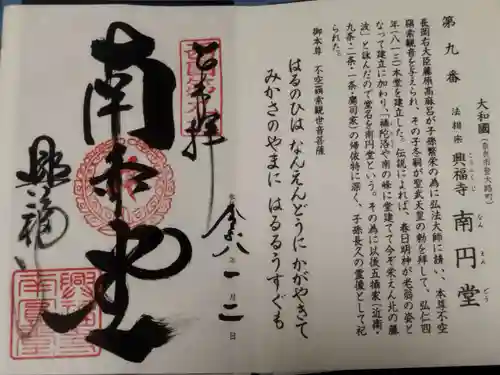 第九番
大和國（奈良市登大路町）
法相宗
興福寺 南円堂
こうふくじ なんえんどう
長岡右大臣藤原高麻呂が子孫繁栄の為に弘法大師に請い、本尊不空
羂索観音を与えられ、その子冬嗣が聖武天皇の勅を拝して、弘仁四
年（八一三）本堂を建立した。伝説によれば、春日明神が老翁の姿と
なって建立に加わり、「補陀洛や南の峰に堂建てて今ぞ栄えん北の藤
波」と詠んだので堂名を南円堂という。その為に以後五摂家（近衛・
九条・二条・一条・鷹司家）の帰依特に深く、子孫長久の霊像として祀
られた。
御本尊 不空羂索観世音菩薩
はるのひは なんえんどうに かがやきて
みかさのやまに はるるうすぐも
奉拝
南円堂
興福寺
年一月二日